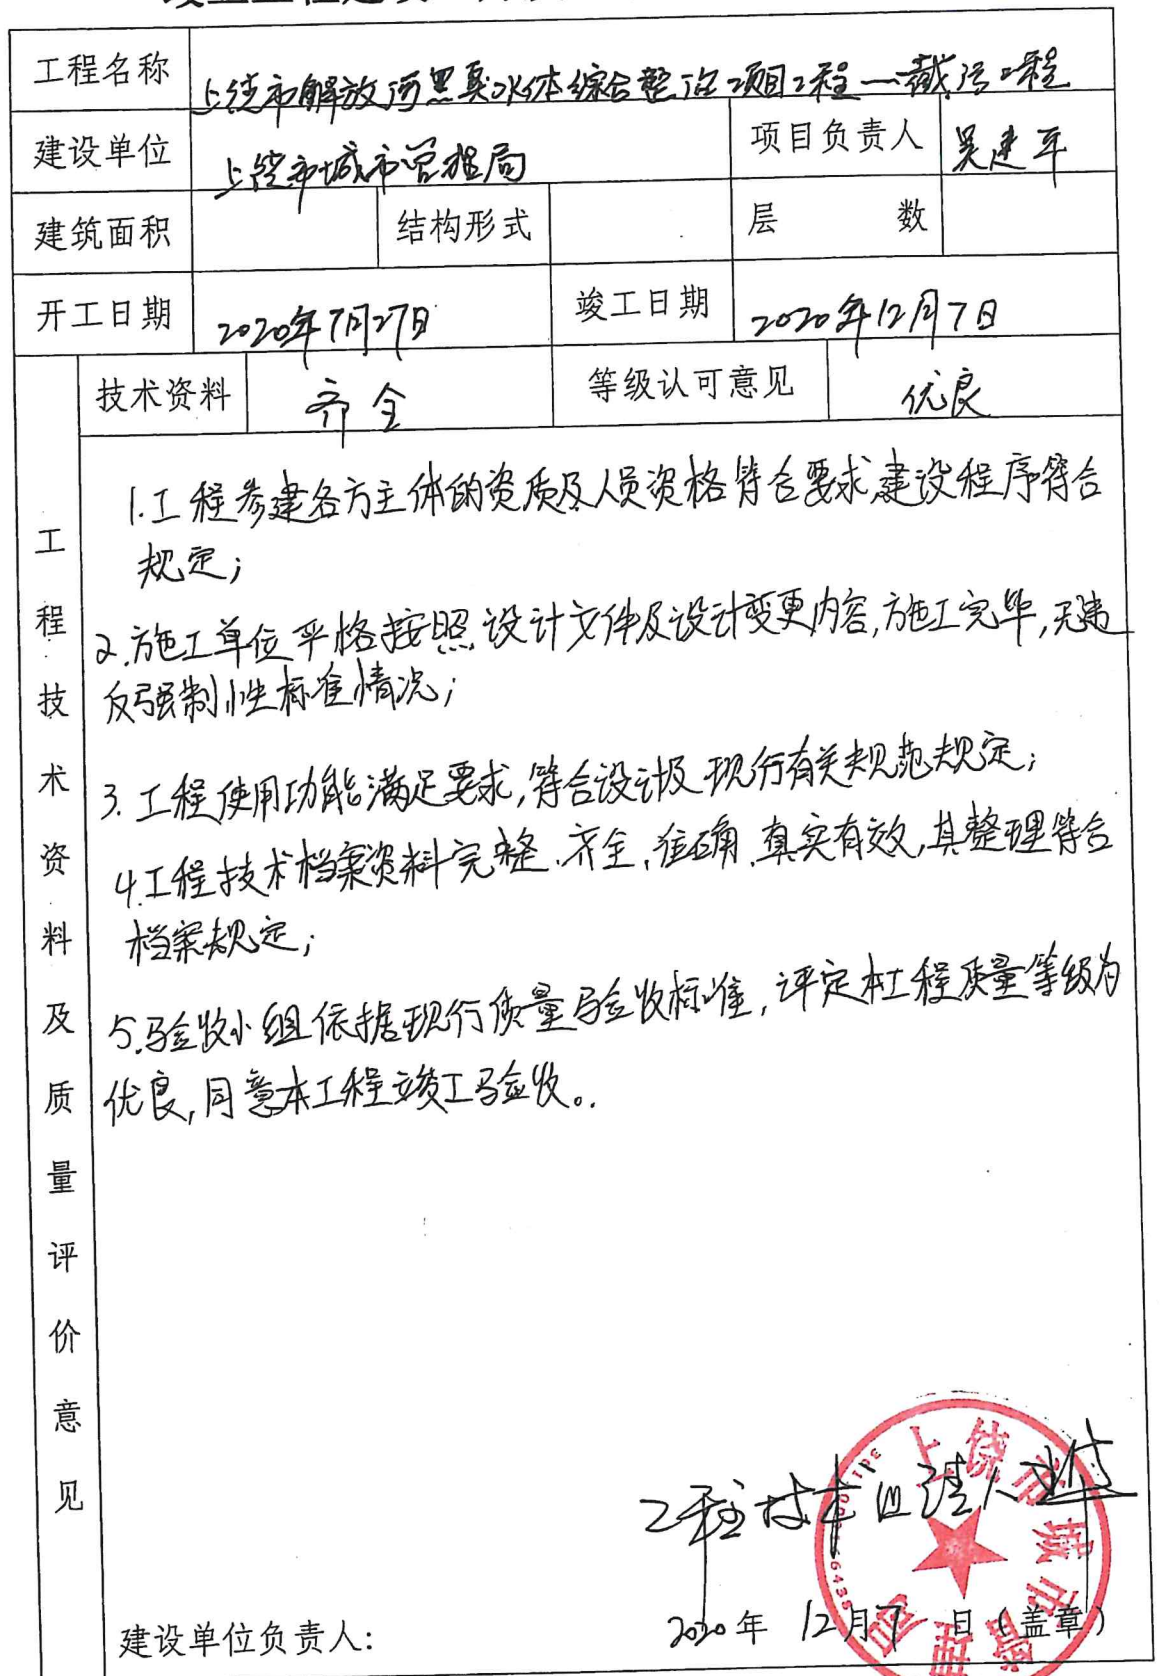 工程名称 上饶市解放河黑臭水体综合整治项目工程一截污工程
建设单位 上饶市城市管理局 项目负责人 吴建平
建筑面积 结构形式 层数
开工日期 2020年7月27日 竣工日期 2020年12月7日
技术资料 齐全 等级认可意见 优良
工程技术资料及质量评价意见
1.工程参建各方主体的资质及人员资格符合要求,建设程序符合
规定;
2.施工单位严格按照设计文件及设计变更内容,施工完毕,无违
反强制性标准情况;
3.工程使用功能满足要求,符合设计及现行有关规范规定;
4.工程技术档案资料完整、齐全,准确、真实有效,其整理符合
档案规定;
5.验收小组依据现行质量验收标准,评定本工程质量等级为
优良,同意本工程竣工验收。
工程技术
建设单位负责人: 2020年12月7日(盖章)
上饶市城市管理局